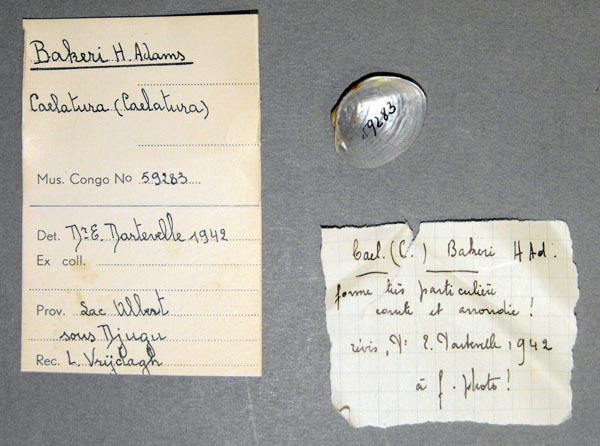 Bakeri H. Adams
Caelatura (Caelatura)
Mus. Congo No 59283
Det. Dr. E. Dartevelle 1942
Ex coll.
Prov. Lac Albert
sous Djugu
Rec. L. Vrijdagh
59283
Cael. (C.) Bakeri H Ad.
forme très particulière
courte et arrondie !
révis. Dr E. Dartevelle, 1942
à f. photo !